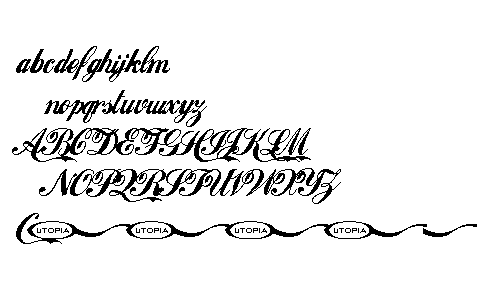 abcdefghijklm
nopqrstuvwxyz
ABCDEFGHIJKLM
NOPQRSTUVWXYZ
UTOPIA UTOPIA UTOPIA UTOPIA